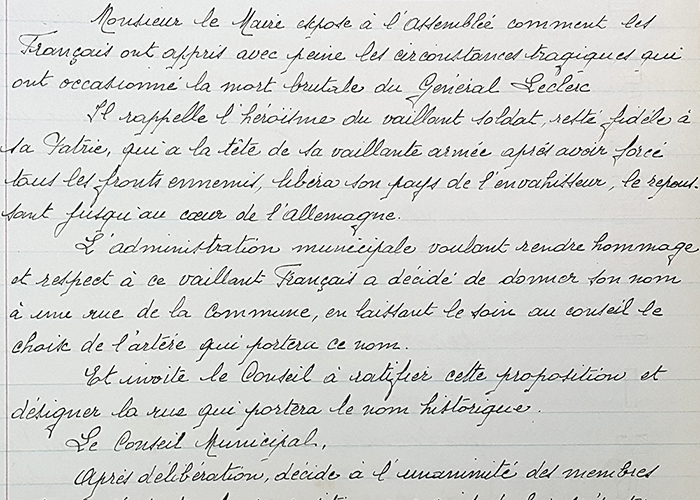 Monsieur le Maire expose à l'Assemblée comment les
Français ont appris avec peine les circonstances tragiques qui
ont occasionné la mort brutale du Général Leclerc
Il rappelle l'héroïsme du vaillant soldat, resté fidèle à
sa Patrie, qui a la tête de sa vaillante armée après avoir forcé
tous les fronts ennemis, libéra son pays de l'envahisseur, le repous-
sant jusqu'au cœur de l'Allemagne.
L'administration municipale voulant rendre hommage
et respect à ce vaillant Français a décidé de donner son nom
à une rue de la Commune, en laissant le soin au conseil le
choix de l'artère qui portera ce nom.
Et invite le Conseil à ratifier cette proposition et
désigner la rue qui portera le nom historique.
Le Conseil Municipal,
Après délibération, décide à l'unanimité des membres